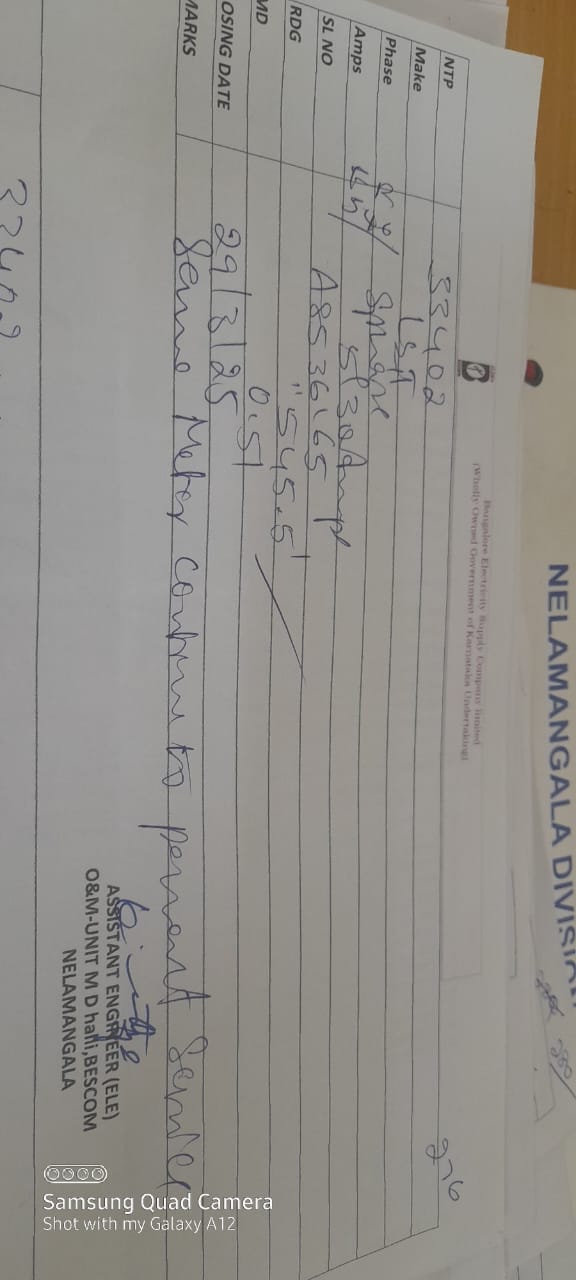 NELAMANGALA DIVISION
Bangalore Electricity Supply Company limited
(Wholly Owned Government of Karnataka Undertaking)
276
NTP 33402
Make L&T
Phase 3 phase
Amps 5/30 Amp
SL NO A8536165
RDG "545.5"
MD 0.51
OSING DATE 29/3/25
MARKS Same Meter continue to permant Service
ASSISTANT ENGINEER (ELE)
O&M-UNIT M D halli,BESCOM
NELAMANGALA
33402
Samsung Quad Camera
Shot with my Galaxy A12